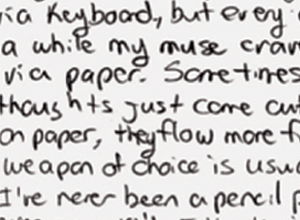 via keyboard, but every
a while my muse cram
via paper. Sometimes
thoughts just come out
on paper, they flow more f
weapon of choice is usu
I've never been a pencil p